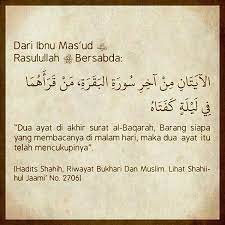 Dari Ibnu Mas'ud
Rasulullah ﷺ Bersabda:
الآيَتَانِ مِنْ آخِرِ سُورَةِ البَقَرَةِ، مَنْ قَرَأَهُمَا
فِي لَيْلَةٍ كَفَتَاهُ
"Dua ayat di akhir surat al-Baqarah, Barang siapa
yang membacanya di malam hari, maka dua ayat itu
telah mencukupinya".
(Hadits Shahih, Riwayat Bukhari Dan Muslim. Lihat Shahii-
hul Jaami' No. 2706)